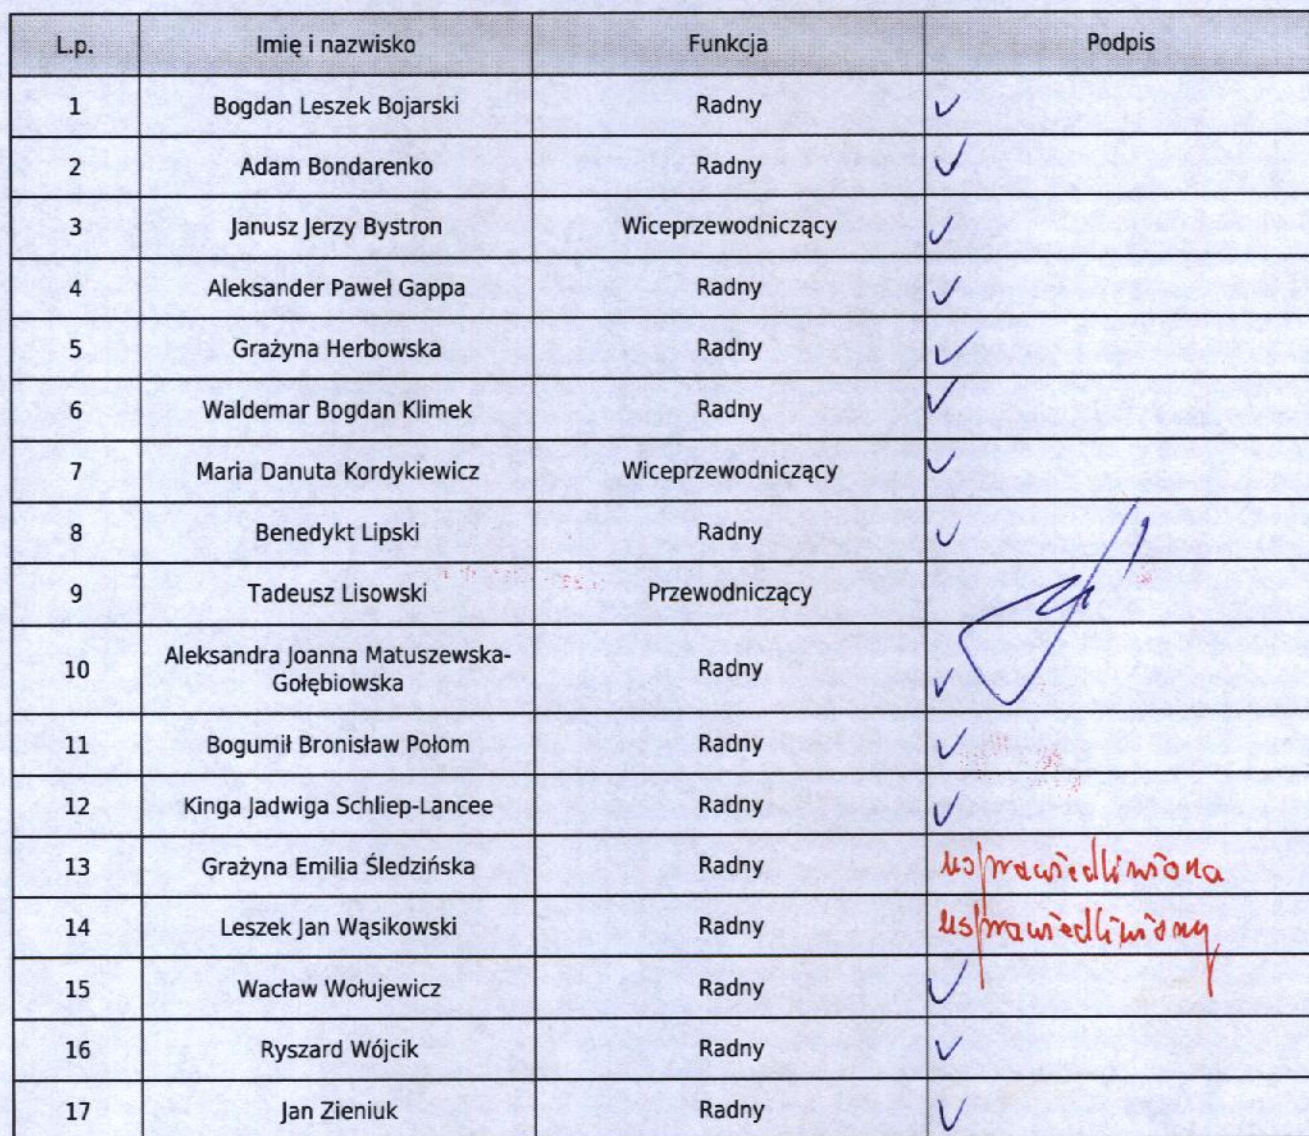 L.p. Imię i nazwisko Funkcja Podpis
1 Bogdan Leszek Bojarski Radny ✓
2 Adam Bondarenko Radny ✓
3 Janusz Jerzy Bystron Wiceprzewodniczący ✓
4 Aleksander Paweł Gappa Radny ✓
5 Grażyna Herbowska Radny ✓
6 Waldemar Bogdan Klimek Radny ✓
7 Maria Danuta Kordykiewicz Wiceprzewodniczący ✓
8 Benedykt Lipski Radny ✓
9 Tadeusz Lisowski Przewodniczący
10 Aleksandra Joanna Matuszewska-
Gołębiowska Radny ✓
11 Bogumił Bronisław Połom Radny ✓
12 Kinga Jadwiga Schliep-Lancee Radny ✓
13 Grażyna Emilia Śledzińska Radny usprawiedliwiona
14 Leszek Jan Wąsikowski Radny usprawiedliwiony
15 Wacław Wołujewicz Radny ✓
16 Ryszard Wójcik Radny ✓
17 Jan Zieniuk Radny ✓